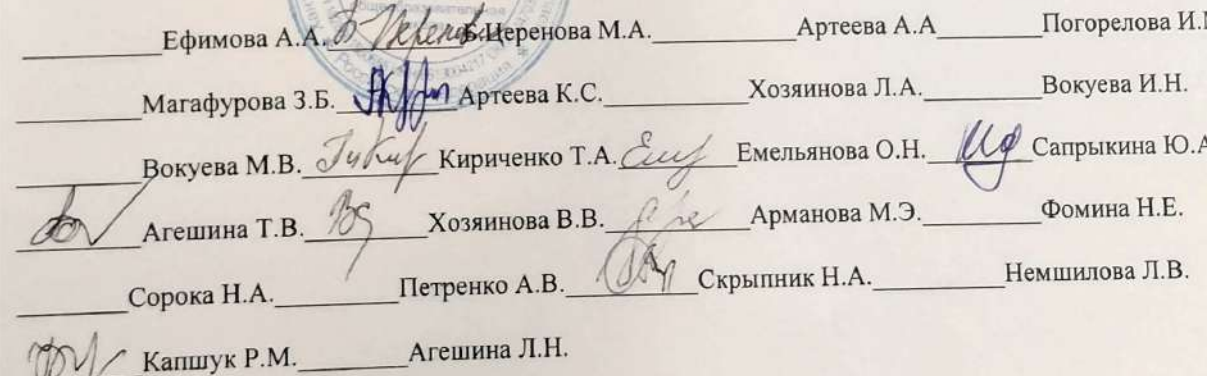 Ефимова А.А. Б.Церенова М.А. Артеева А.А Погорелова И.
Магафурова З.Б. Артеева К.С. Хозяинова Л.А. Вокуева И.Н.
Вокуева М.В. Кириченко Т.А. Емельянова О.Н. Сапрыкина Ю.А
Агешина Т.В. Хозяинова В.В. Арманова М.Э. Фомина Н.Е.
Сорока Н.А. Петренко А.В. Скрыпник Н.А. Немшилова Л.В.
Капшук Р.М. Агешина Л.Н.